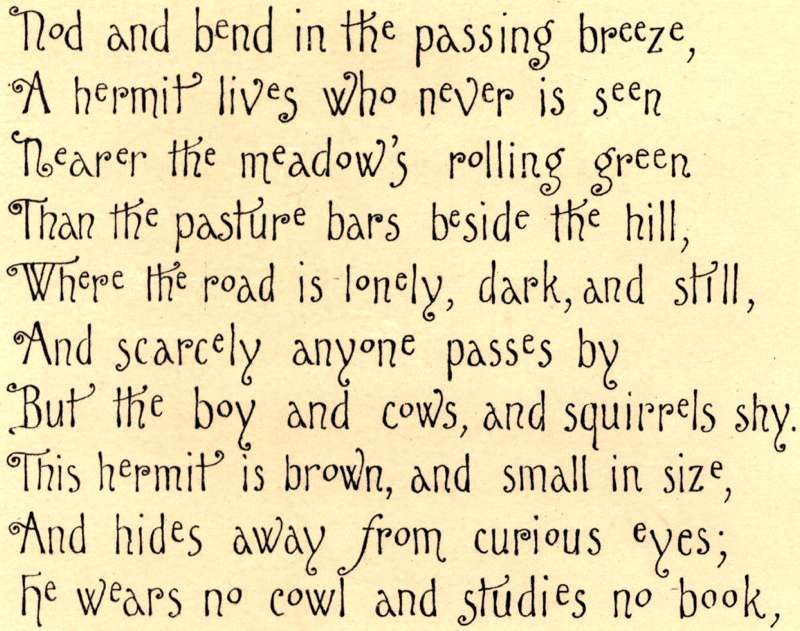 Nod and bend in the passing breeze,
A hermit lives who never is seen
Nearer the meadow's rolling green
Than the pasture bars beside the hill,
Where the road is lonely, dark, and still,
And scarcely anyone passes by
But the boy and cows, and squirrels shy.
This hermit is brown, and small in size,
And hides away from curious eyes;
He wears no cowl and studies no book,